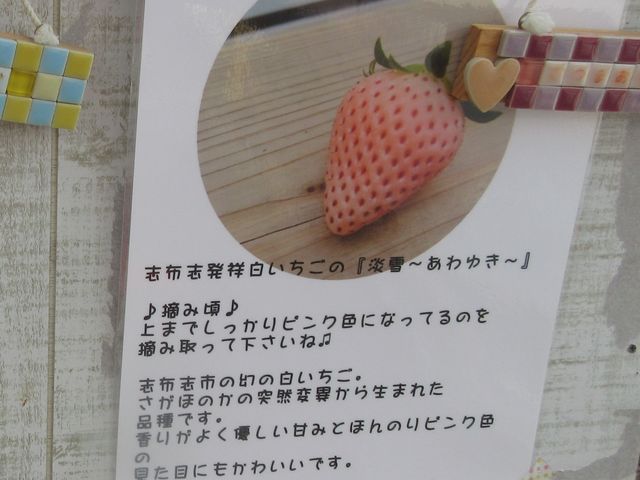 志布志発祥白いちごの『淡雪～あわゆき～』
♪摘み頃♪
上までしっかりピンク色になってるのを
摘み取って下さいね♫
志布志市の幻の白いちご。
さがほのかの突然変異から生まれた
品種です。
香りがよく優しい甘みとほんのりピンク色
の
見た目にもかわいいです。